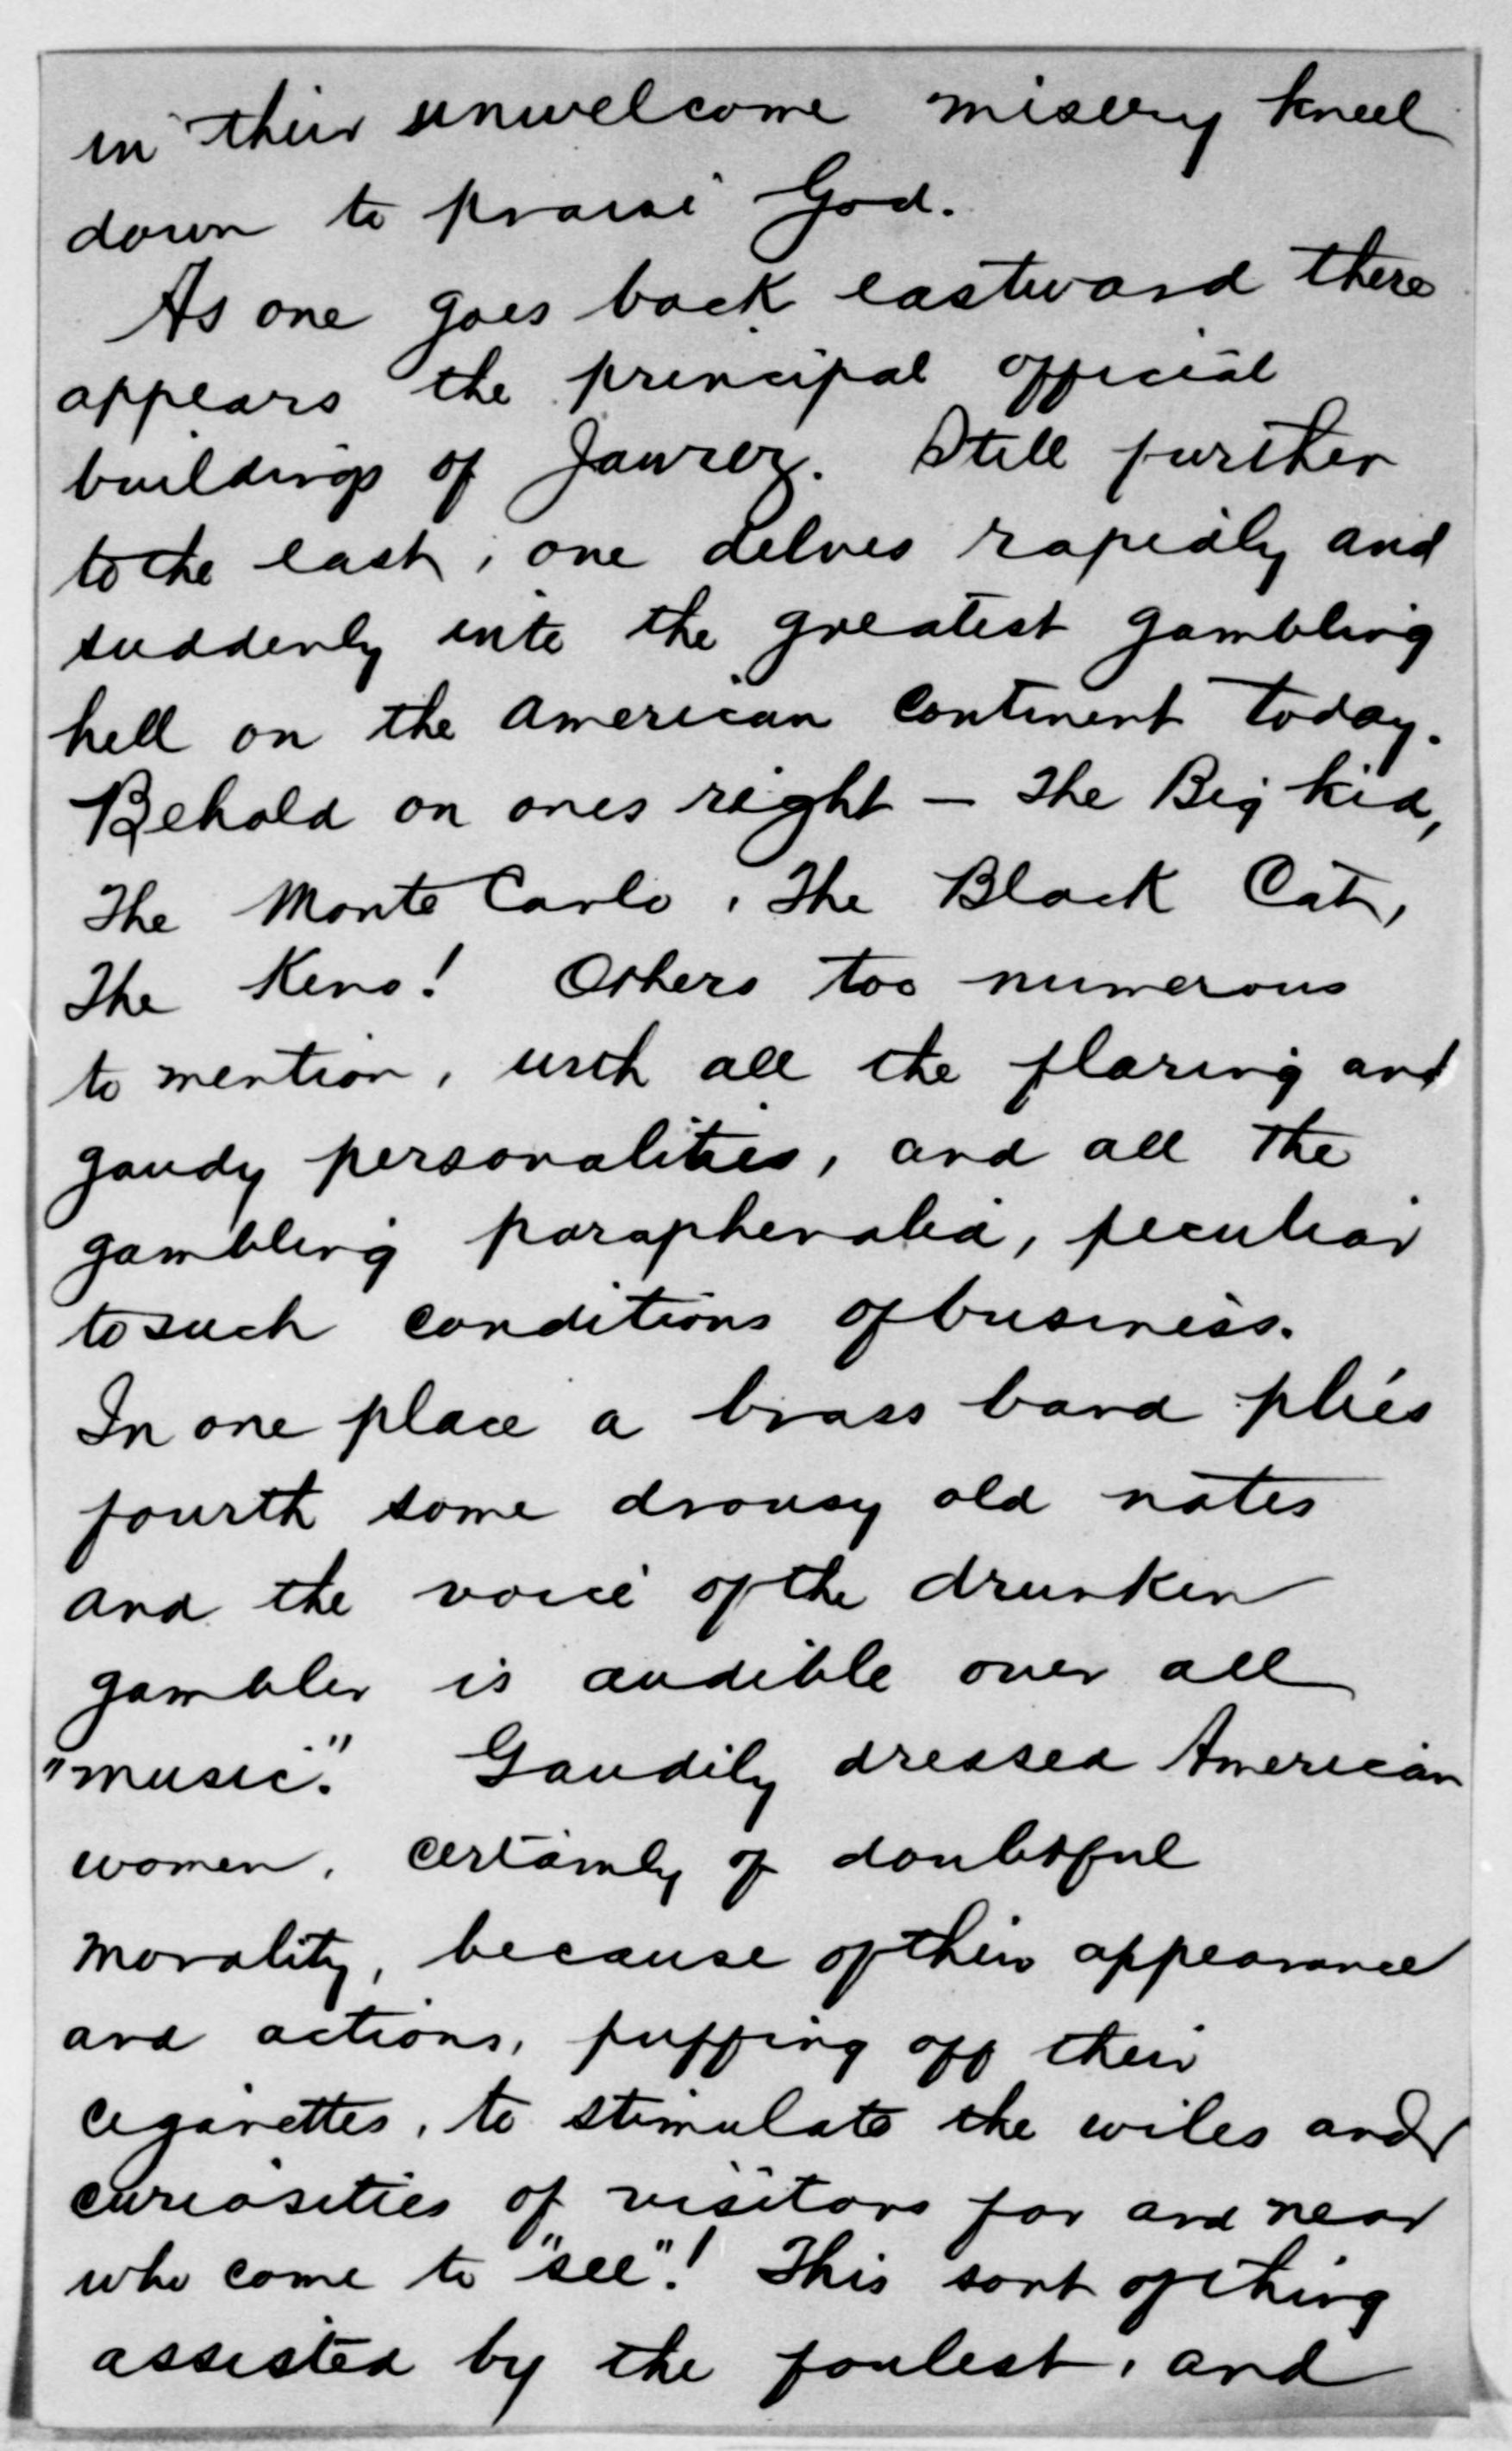 in their unwelcome misery kneel
down to praise God.
As one goes back eastward there
appears the principal official
buildings of Jaurez. Still further
to the east, one delves rapidly and
suddenly into the greatest gambling
hell on the American Continent today.
Behold on ones right – The Big Kid,
The Monte Carlo, The Black Cat,
The Keno! Others too numerous
to mention, with all the flaring and
gaudy personalities, and all the
gambling paraphenalia, peculiar
to such conditions of business.
In one place a brass band plies
fourth some drousy old notes
and the voice of the drunken
gambler is audible over all
"music." Gaudily dressed American
women, certainly of doubtful
morality, because of their appearance
and actions, puffing off their
cigarettes, to stimulate the wiles and
curiosities of visitors far and near
who come to "see"! This sort of thing
assisted by the foulest, and